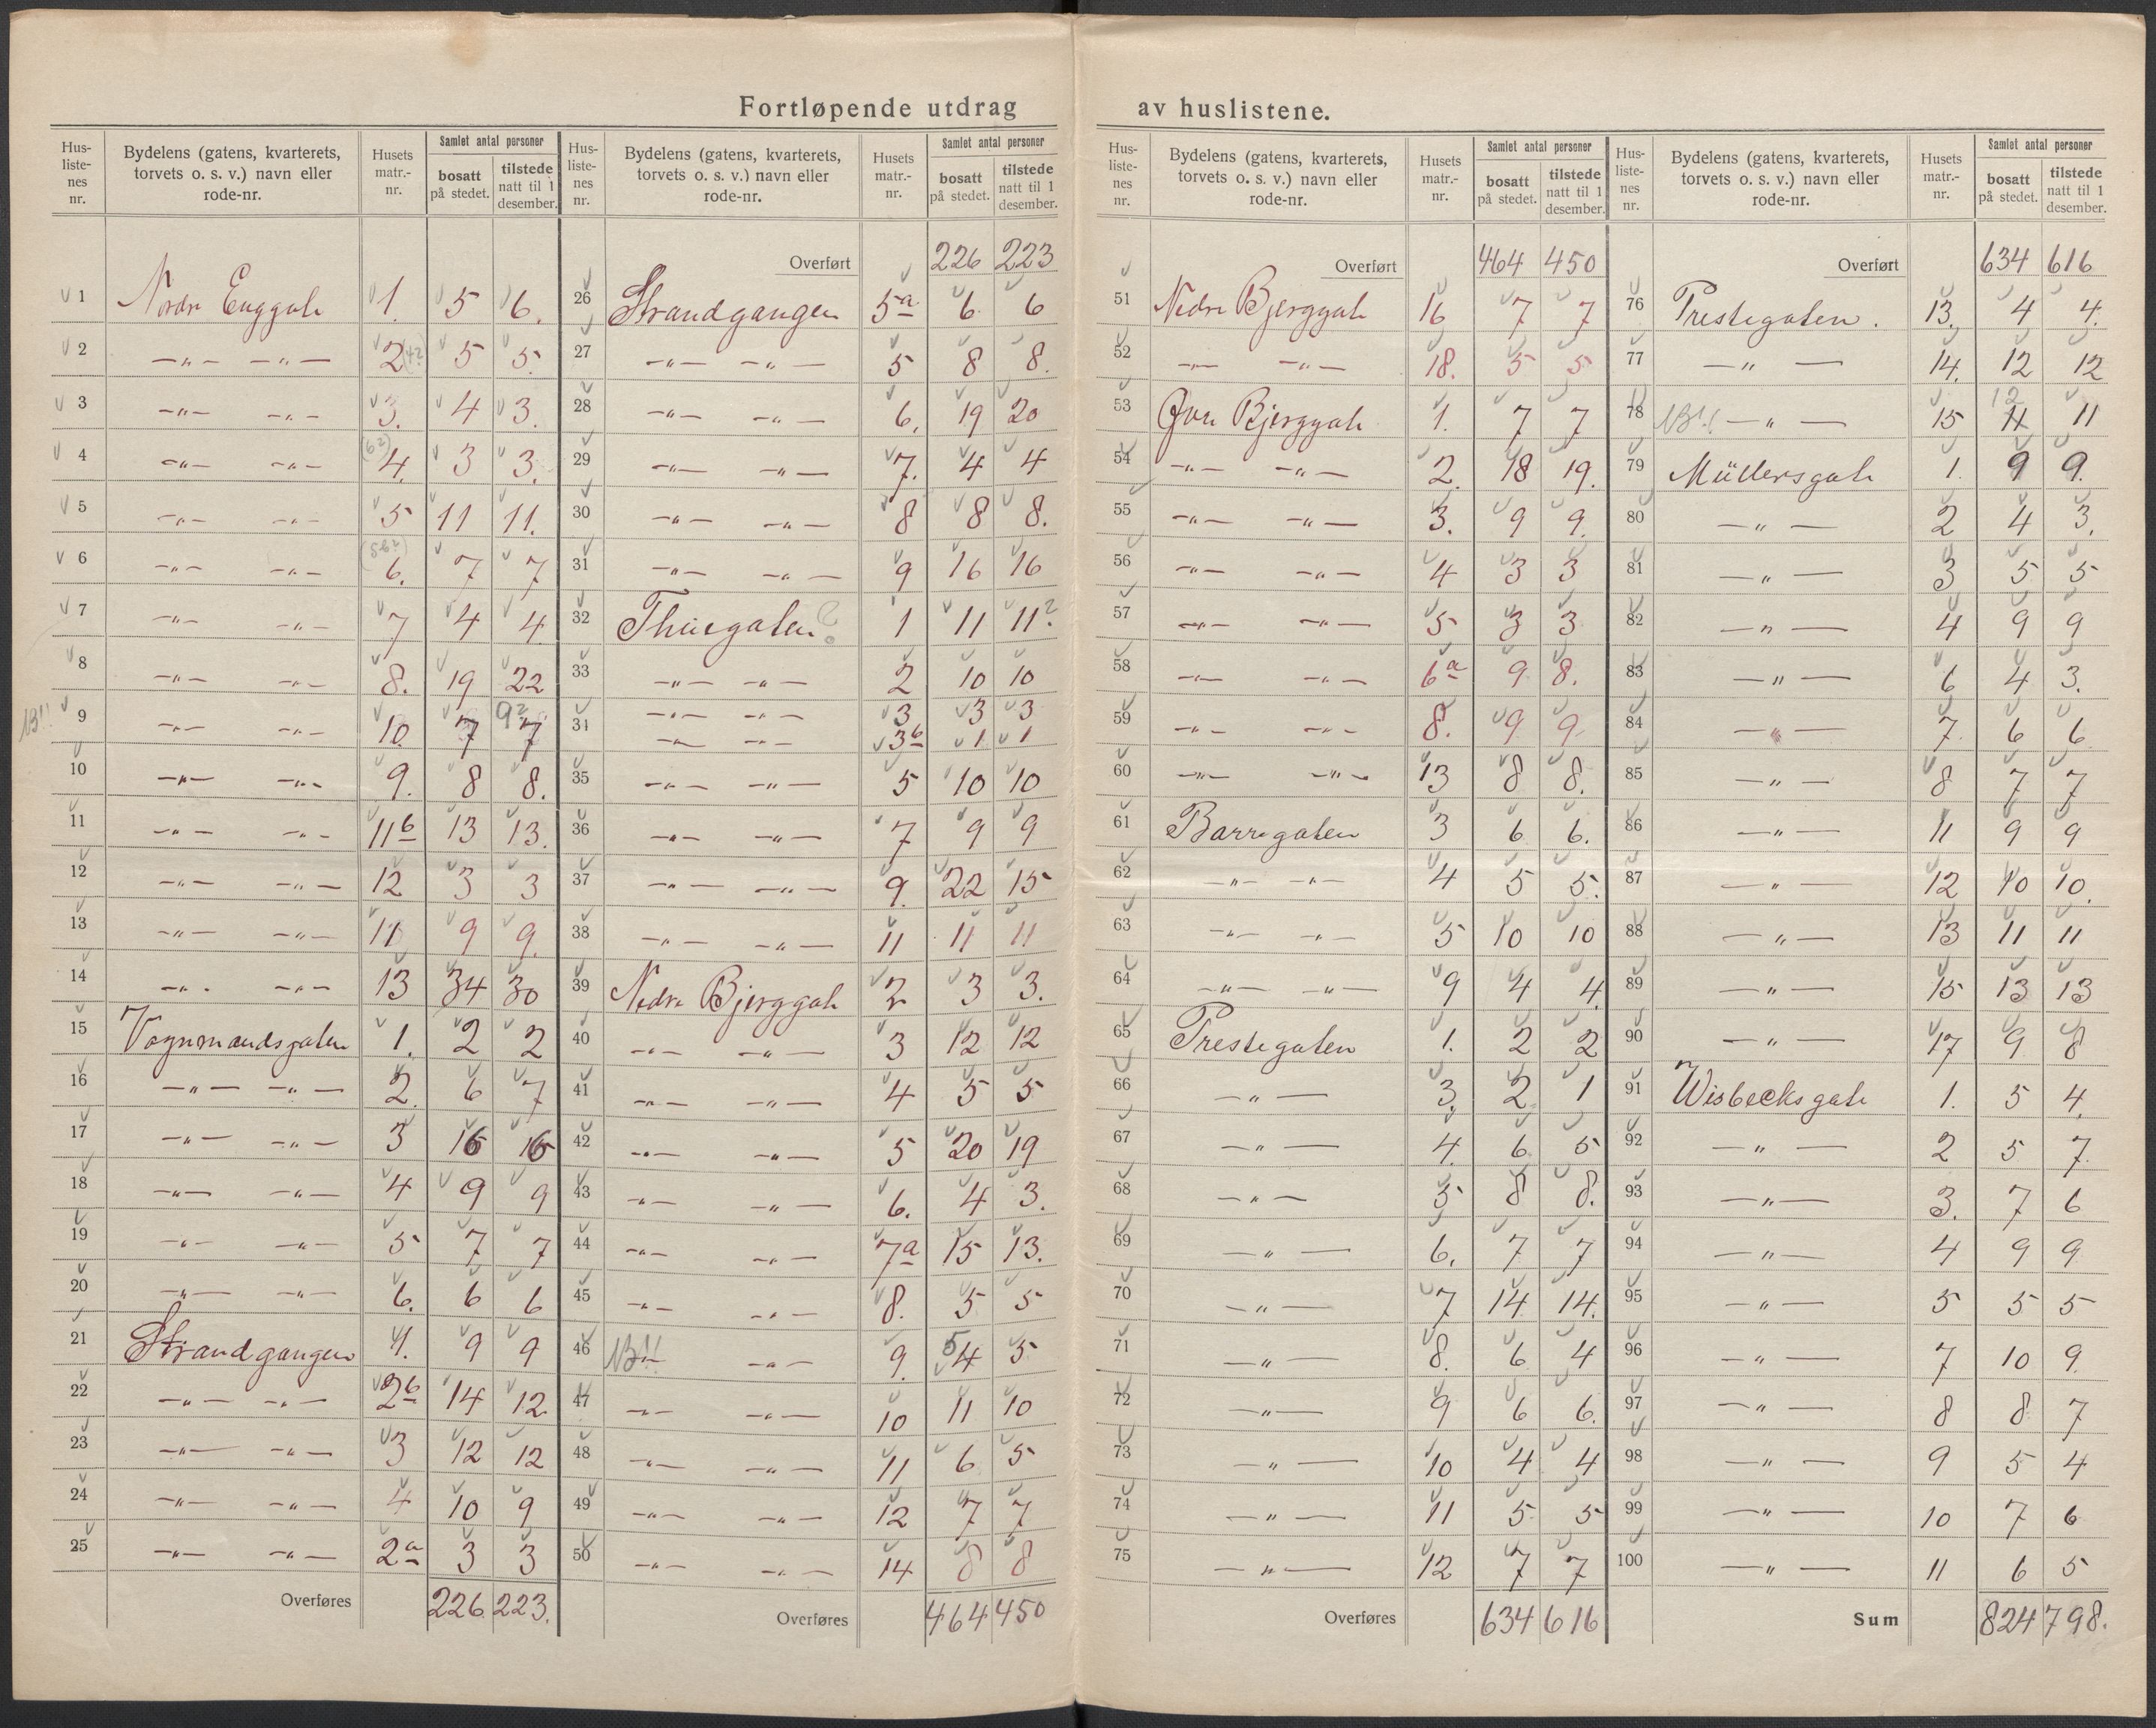 Fortløpende utdrag av huslistene.
Hus-liste-nes nr. | Bydelens (gatens, kvarterets, torvets o. s. v.) navn eller rode-nr. | Husets matr.-nr. | Samlet antal personer | bosatt på stedet. | tilstede natt til 1 desember.
1 Nordre Enggate 1. 5 6.
2 —„— —„— 2 (4?) 5 5.
3 —„— —„— 3. 4 3.
4 —„— —„— (6?) 4. 3 3.
5 —„— —„— 5 11 11.
6 —„— —„— 6. 7 7
7 —„— —„— 7 4 4
8 —„— —„— 8. 19 22
NB!! 9 —„— —„— 10. 7 9? 7
10 —„— —„— 9. 8 8.
11 —„— —„— 11b 13 13.
12 —„— —„— 12 3 3
13 —„— —„— 11 9 9.
14 —„— —„— 13 34 30
15 Vognmandsgaten 1. 2 2
16 —„— —„— 2. 6 7
17 —„— —„— 3 16 16
18 —„— —„— 4 9 9
19 —„— —„— 5 7 7
20 —„— —„— 6. 6 6
21 Strandgangen 1. 9 9
22 —„— —„— 2b 14 12
23 —„— —„— 3 12 12
24 —„— —„— 4 10 9
25 —„— —„— 2a 3 3
Overføres 226 223.
Hus-liste-nes nr. | Bydelens (gatens, kvarterets, torvets o. s. v.) navn eller rode-nr. | Husets matr.-nr. | Samlet antal personer | bosatt på stedet. | tilstede natt til 1 desember.
Overført 226 223
26 Strandgangen 5a 6 6
27 —„— —„— 5 8 8.
28 —„— —„— 6. 19 20
29 —„— —„— 7. 4 4
30 —„— —„— 8 8 8.
31 —„— —„— 9 16 16
32 Thuegaten? 1 11 11?
33 —„— —„— 2 10 10
34 —„— —„— 3 3 3
—„— —„— 3b 1 1
35 —„— —„— 5 10 10
36 —„— —„— 7 9 9
37 —„— —„— 9. 22 15
38 —„— —„— 11 11 11
39 Nedre Bjerggate 2 3 3.
40 —„— —„— 3 12 12
41 —„— —„— 4 5 5
42 —„— —„— 5 20 19
43 —„— —„— 6. 4 3.
44 —„— —„— 7a 15 13.
45 —„— —„— 8. 5 5
46 NB!! —„— 9. 5 4 5
47 —„— —„— 10 11 10
48 —„— —„— 11 6 5
49 —„— —„— 12 7 7
50 —„— —„— 14 8 8
Overføres 464 450
Hus-liste-nes nr. | Bydelens (gatens, kvarterets, torvets o. s. v.) navn eller rode-nr. | Husets matr.-nr. | Samlet antal personer | bosatt på stedet. | tilstede natt til 1 desember.
Overført 464 450
51 Nedre Bjerggate 16 7 7
52 —„— —„— 18. 5 5
53 Øvre Bjerggate 1. 7 7
54 —„— —„— 2. 18 19.
55 —„— —„— 3. 9 9.
56 —„— —„— 4 3 3
57 —„— —„— 5 3 3
58 —„— —„— 6a 9 8.
59 —„— —„— 8. 9 9
60 —„— —„— 13 8 8.
61 Barregaten 3 6 6.
62 —„— —„— 4 5 5.
63 —„— —„— 5 10 10
64 —„— —„— 9 4 4
65 Prestegaten 1. 2 2
66 —„— 3. 2 1
67 —„— 4. 6 5
68 —„— 5 8 8.
69 —„— 6. 7 7
70 —„— 7 14 14.
71 —„— 8. 6 4
72 —„— 9 6 6.
73 —„— 10 4 4
74 —„— 11 5 5
75 —„— 12 7 7
Overføres 634 616
Hus-liste-nes nr. | Bydelens (gatens, kvarterets, torvets o. s. v.) navn eller rode-nr. | Husets matr.-nr. | Samlet antal personer | bosatt på stedet. | tilstede natt til 1 desember.
Overført 634 616
76 Prestegaten. 13. 4 4.
77 —„— 14. 12 12
78 NB!! —„— 15 12 11 11
79 Müllersgate 1. 9 9.
80 —„— 2 4 3.
81 —„— 3 5 5
82 —„— 4 9 9
83 —„— 6 4 3.
84 —„— 7. 6 6
85 —„— 8 7 7
86 —„— 11 9 9
87 —„— 12 10 10.
88 —„— 13 11 11
89 —„— 15 13 13
90 —„— 17 9 8
91 Wisbecksgate 1. 5 4.
92 —„— 2 5 7.
93 —„— 3. 7 6
94 —„— 4 9 9
95 —„— 5 5 5
96 —„— 7 10 9.
97 —„— 8 8 7
98 —„— 9 5 4
99 —„— 10 7 6
100 —„— 11 6 5
Sum 824 798.